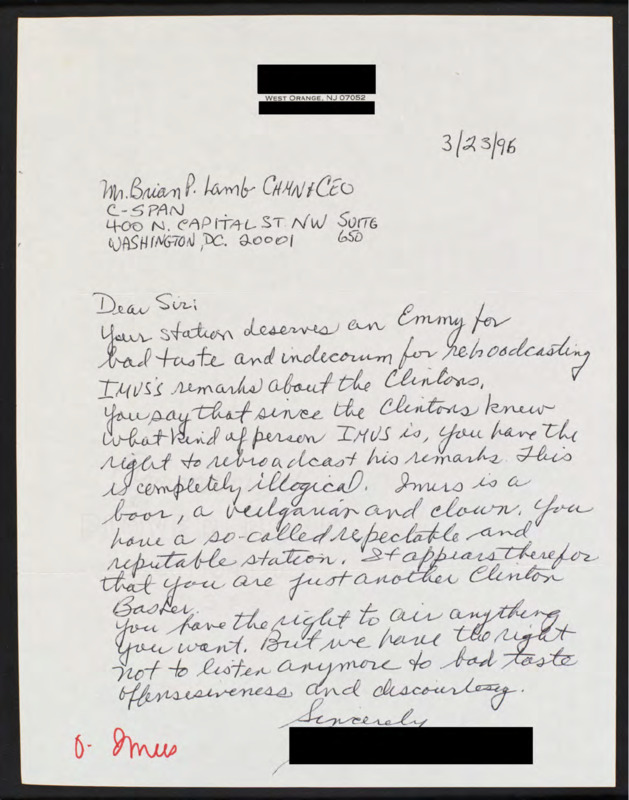 WEST ORANGE, NJ 07052
3/23/96
Mr. Brian P. Lamb CHMN & CEO
C-SPAN
400 N. CAPITAL ST NW SUITE
650
WASHINGTON, DC. 20001
Dear Sir:
Your station deserves an Emmy for
bad taste and indecorum for reboodcasting
IMUS's remarks about the Clintons.
You say that since the Clintons knew
what kind of person IMUS is, you have the
right to rebroadcast his remarks. This
is completely illogical. Imus is a
boor, a vulgarian and clown. You
have a so-called repectable and
reputable station. It appears therefor
that you are just another Clinton
Basher.
You have the right to air anything
you want. But we have the right
not to listen anymore to bad taste
offensesiveness and discourtesy.
Sincerely
O- Imus